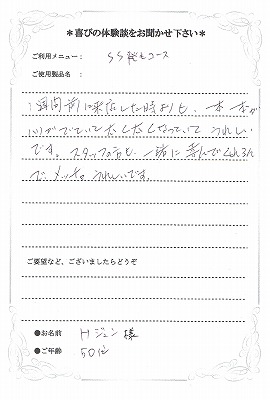 ＊喜びの体験談をお聞かせ下さい＊
ご利用メニュー： SS発毛コース
ご使用製品名：
1週間前に来店した時よりも、一本一本が
ハリがでていて太くなっていて うれしい
です。スタッフの方も、一緒に喜んでくれるん
で、メッチャうれしいです。
ご要望など、ございましたらどうぞ
●お名前 H ジュン 様
●ご年齢 50代